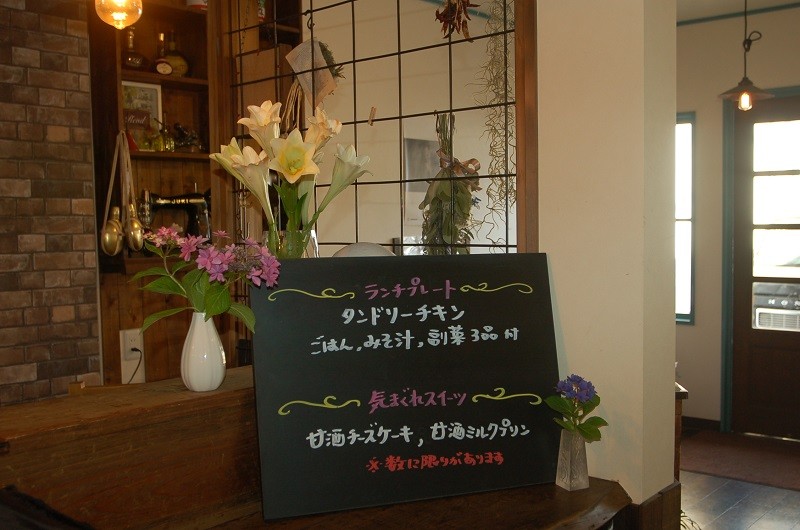 ランチプレート
タンドリーチキン
ごはん,みそ汁,副菜3品付
気まぐれスイーツ
甘酒チーズケーキ,甘酒ミルクプリン
※数に限りがあります